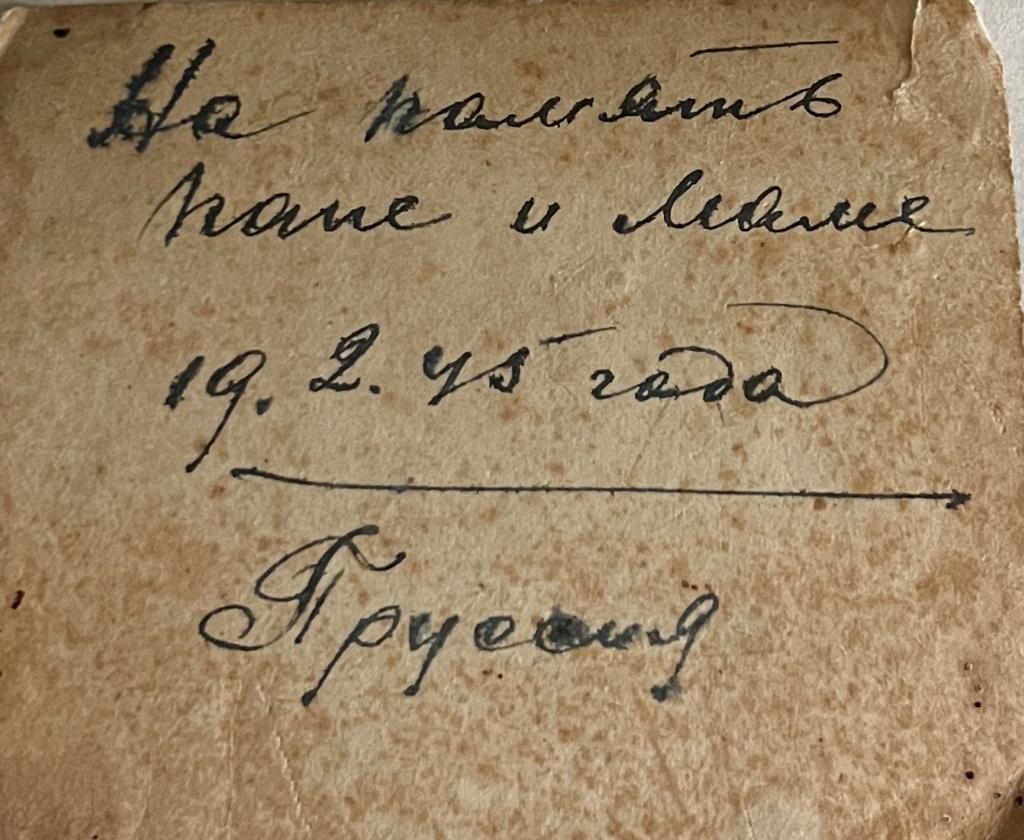 На память
папе и маме
19. 2. 45 года
Пруссия